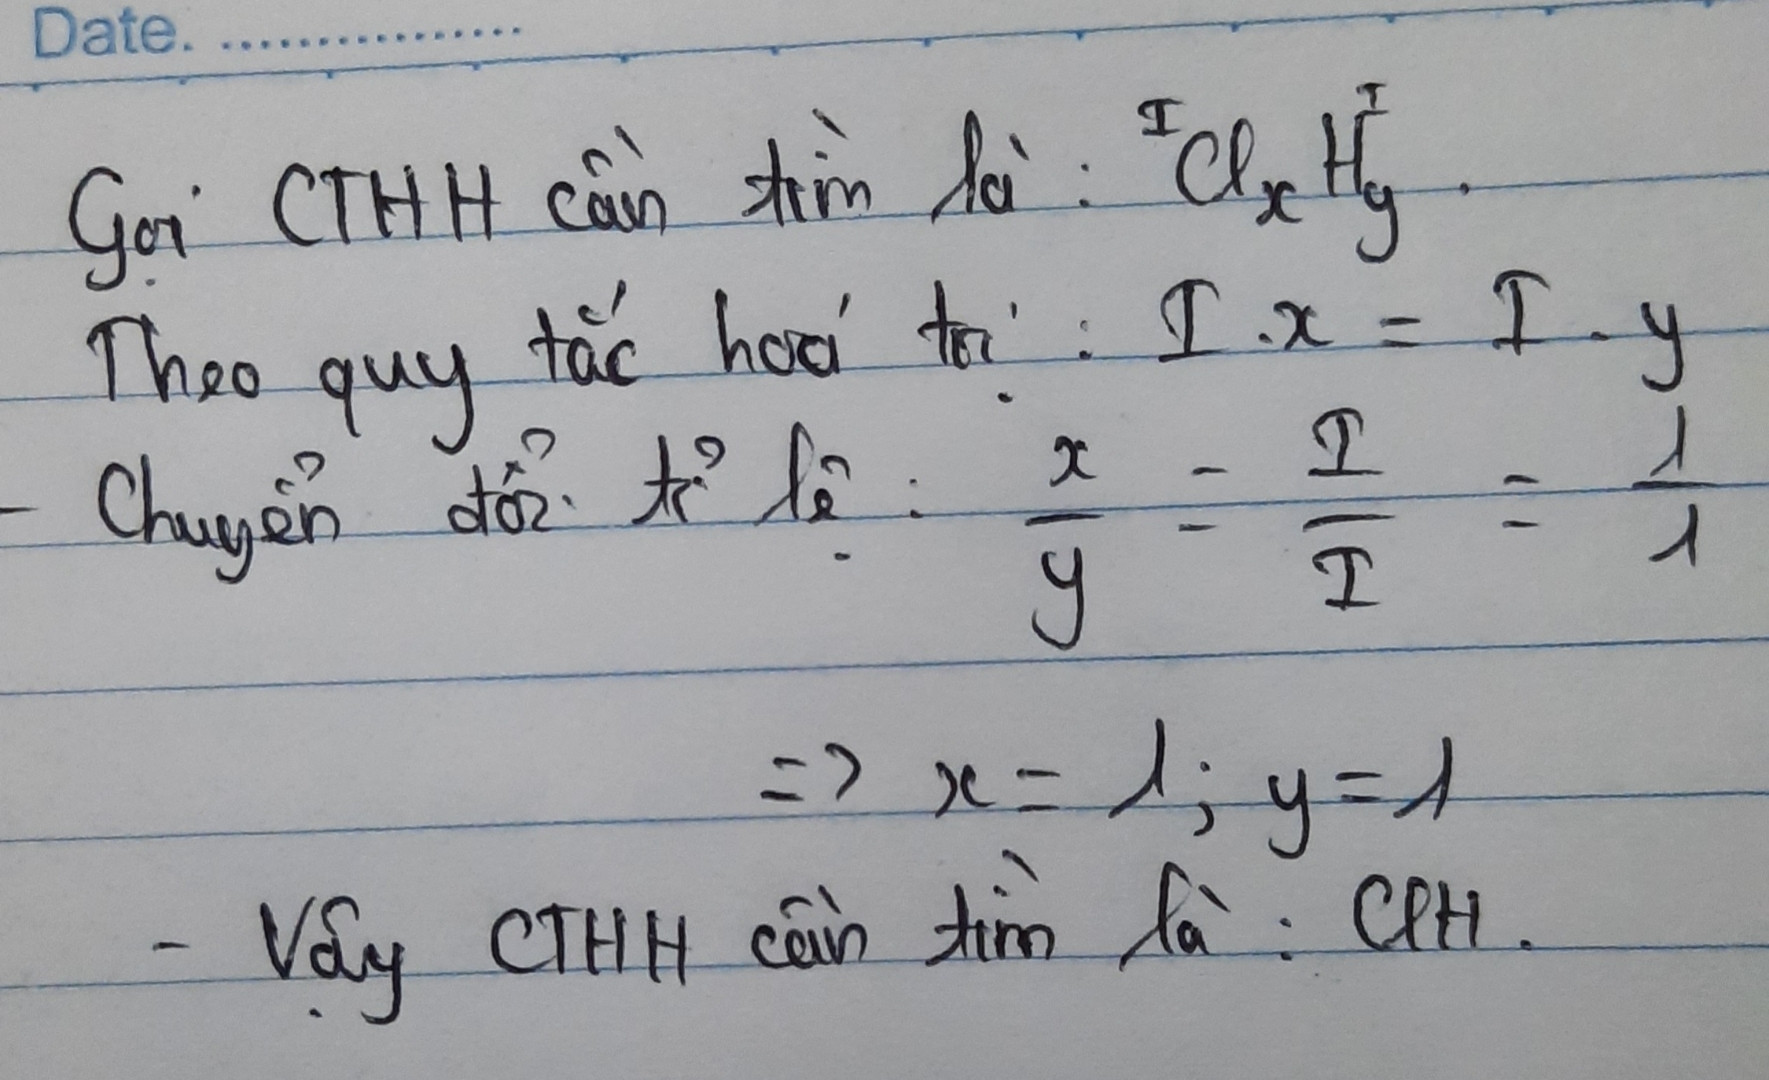 Date. ................
Gọi CTHH cần tìm là : ᴵClₓHᴵᵧ.
Theo quy tắc hoá trị : I . x = I . y
- Chuyển đổi tỉ lệ : x/y = I/I = 1/1
=> x = 1; y = 1
- Vậy CTHH cần tìm là : ClH.